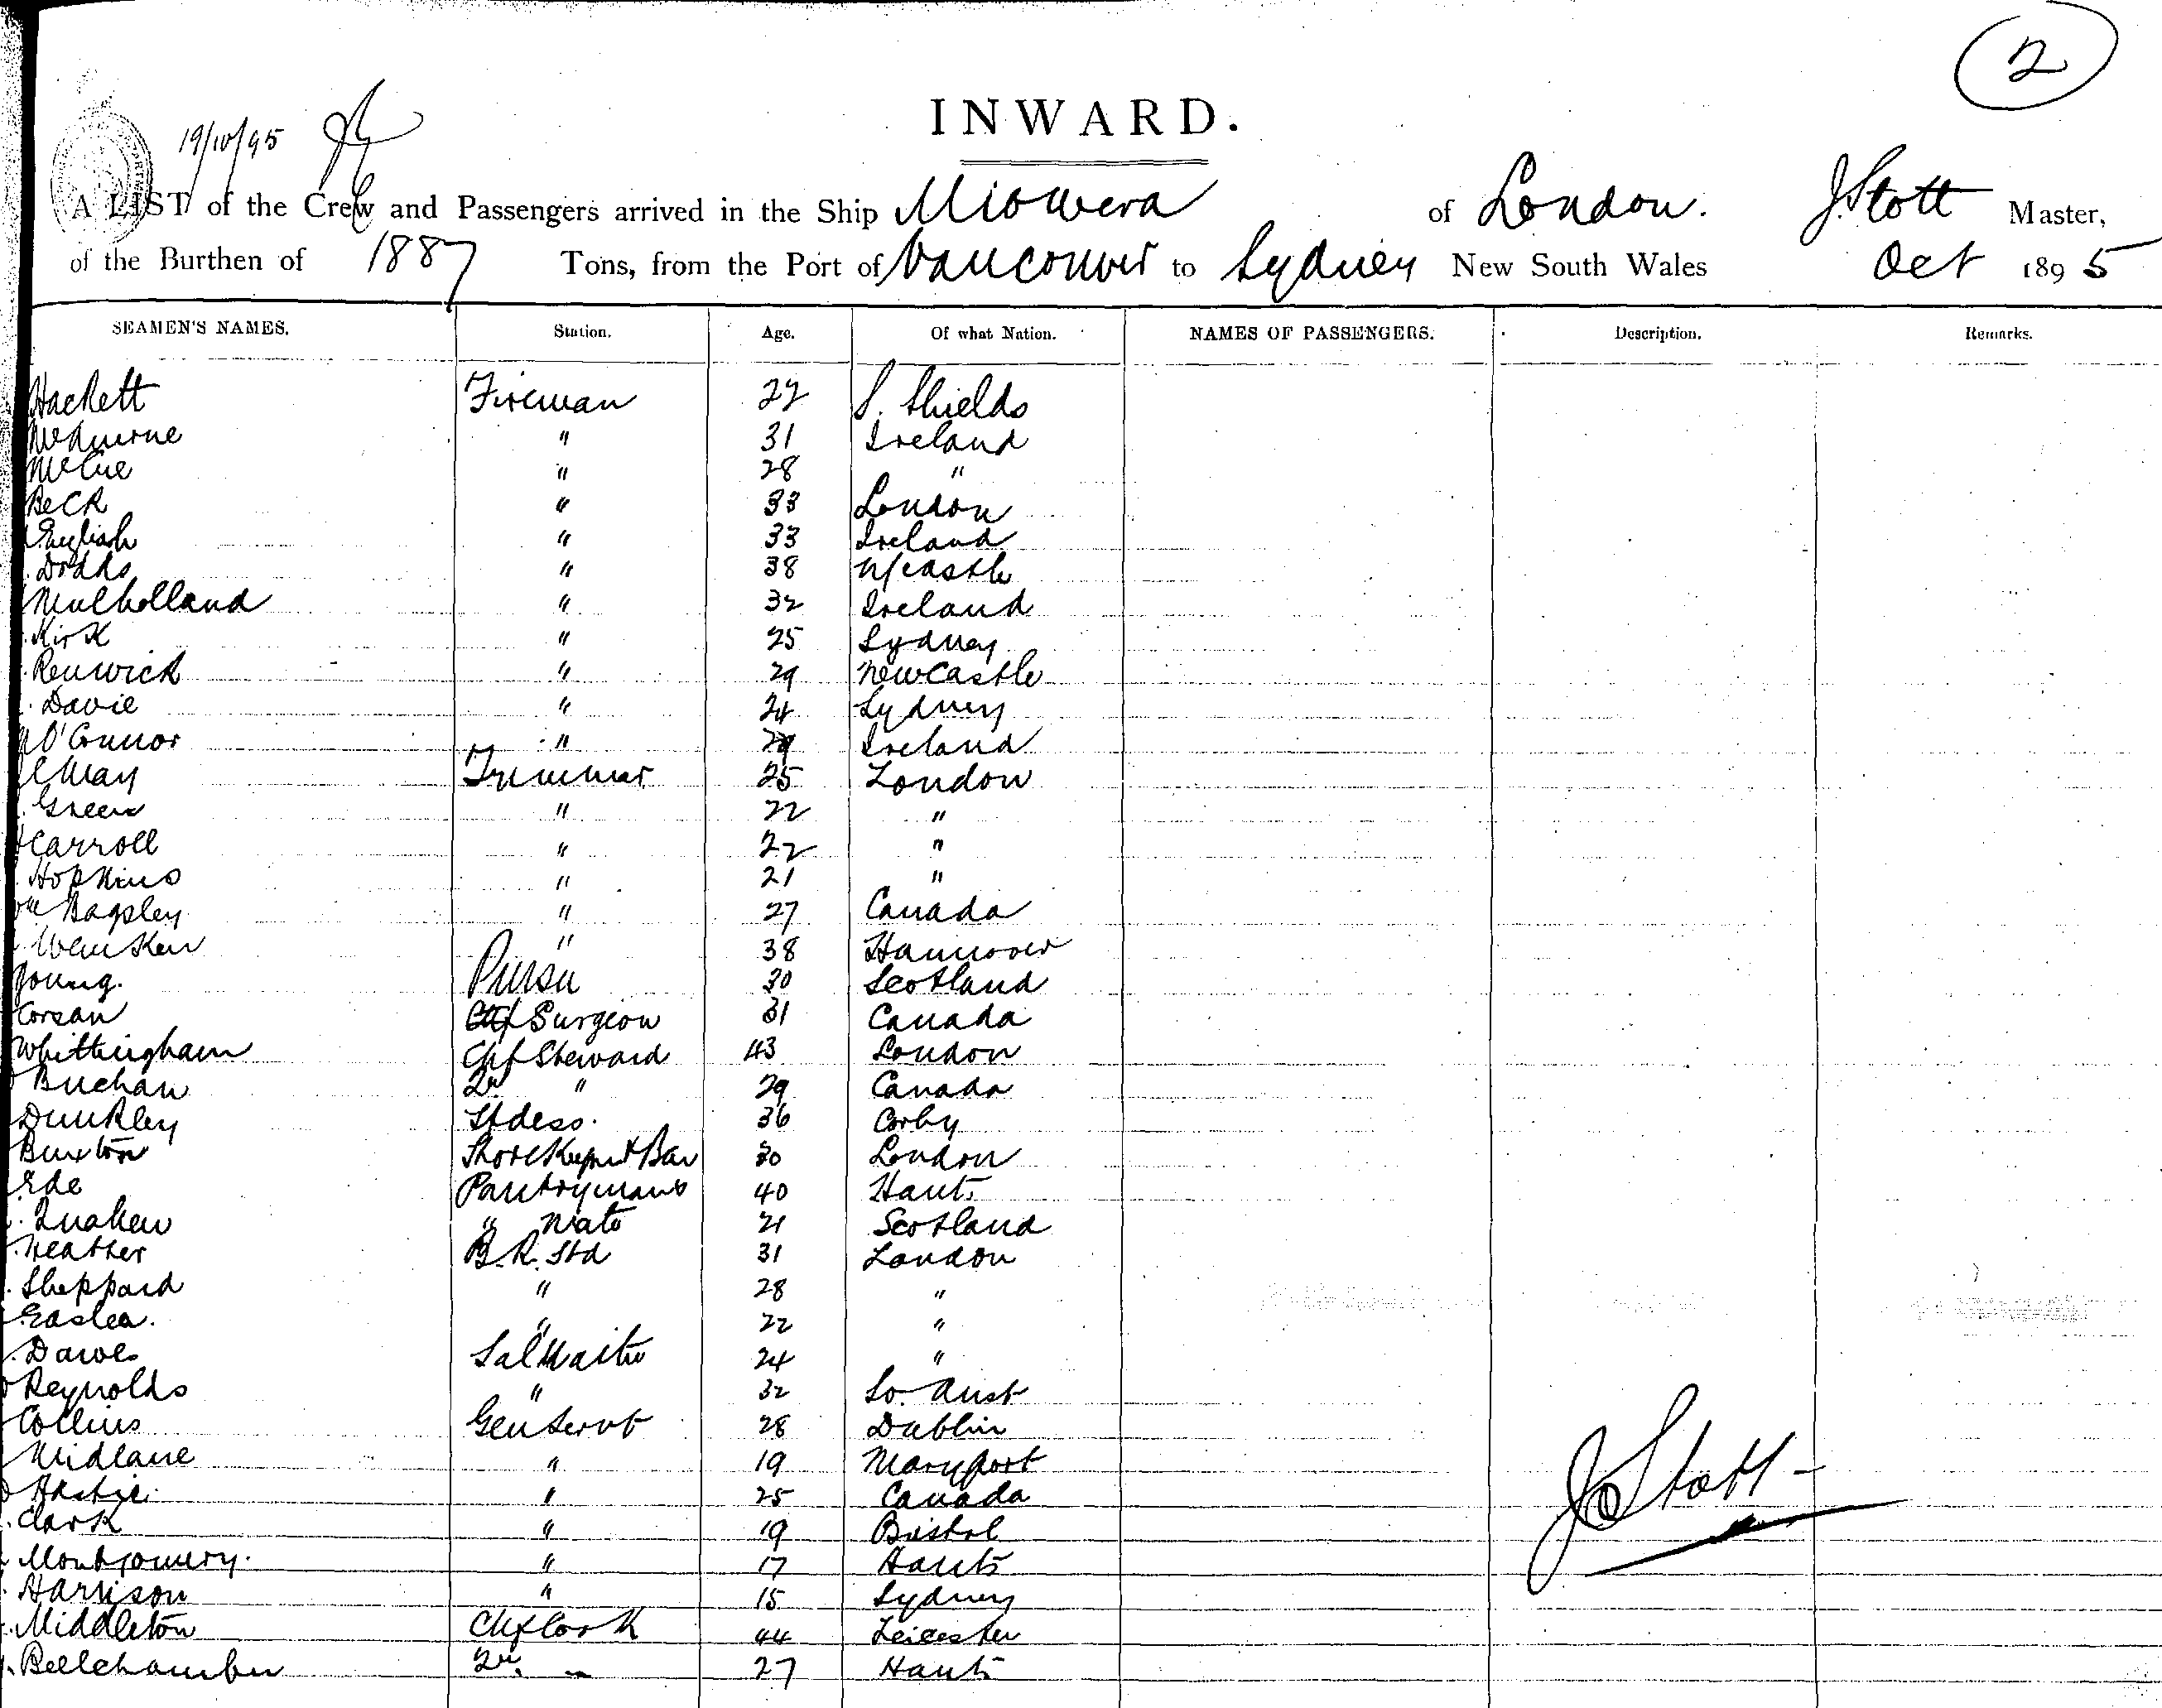 2
INWARD.
19/10/95
A LIST of the Crew and Passengers arrived in the Ship Miowera of London. J. Stott Master,
of the Burthen of 1887 Tons, from the Port of Vancouver to Sydney New South Wales Oct 1895
SEAMEN'S NAMES. Station. Age. Of what Nation. NAMES OF PASSENGERS. Description. Remarks.
Hackett Fireman 22 S. Shields
" 31 Ireland
McCue " 28 "
Beck " 33 London
English " 33 Ireland
Dodds " 38 N/castle
Mulholland " 32 Ireland
Kirk " 25 Sydney
Renwick " 29 Newcastle
Davie " 24 Sydney
O'Connor " 29 Ireland
May Trimmer 25 London
Green " 22 "
Carroll " 22 "
Hopkins " 21 "
Bagsley " 27 Canada
" 38 Hannover
Young. Purser 30 Scotland
Corsan Surgeon 31 Canada
Whittingham Chf Steward 43 London
Buchan 2nd " 29 Canada
Dunkley Stdess. 36 Corby
Buxton Storekeeper & Bar 30 London
Ede Pantryman 40 Hants
" Mate 21 Scotland
Neather B.R. Std 31 London
Sheppard " 28 "
Easlea. " 22 "
Dawes Sal Waiter 24 "
Reynolds " 32 So. Aust
Collins Gen Servt 28 Dublin
Midlane " 19 Maryport
Hastie " 25 Canada
Clark " 19 Bristol
Montgomery. " 17 Hants
Harrison " 15 Sydney
Middleton Chf Cook 44 Leicester
Bellchamber 2nd " 27 Hants
J Stott